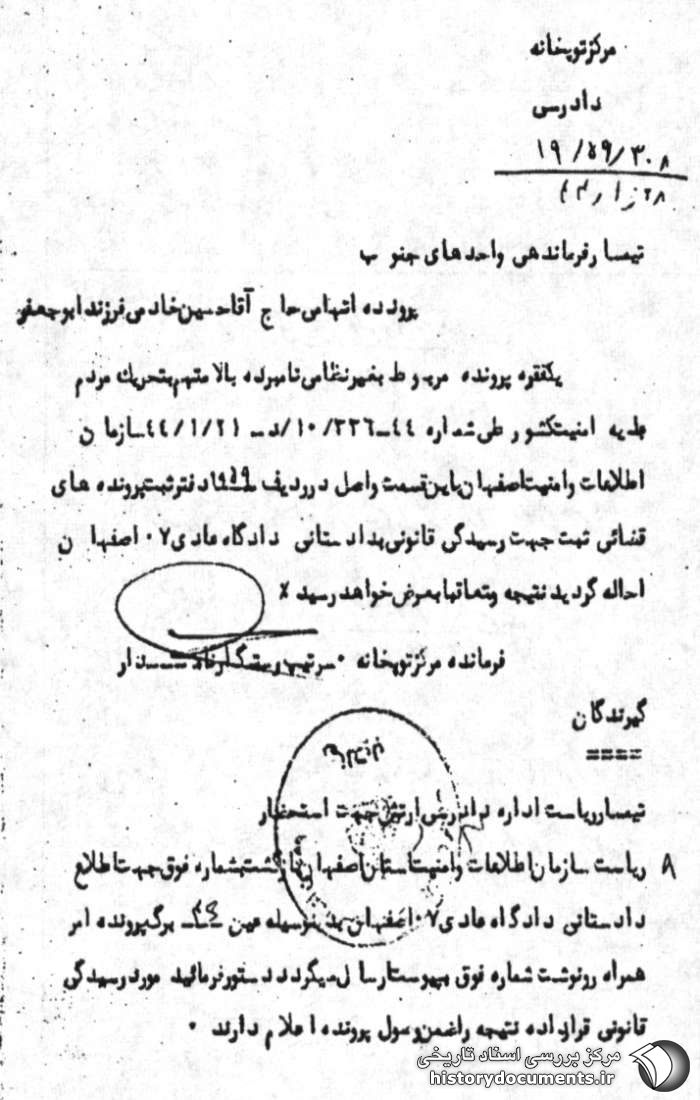 مرکز توپخانه
دادرسی
تیمسار فرماندهی واحدهای جنوب
پرونده اتهامی حاج آقا حسین خادمی فرزند ابوجعفر
یکفقره پرونده مربوط بغیرنظامی نامبرده بالا متهم بتحریك مردم
علیه امنیت کشور طی شماره ۴۴ـ۱۰/۳۳۶/د ـ ۴۴/۱/۲۱ سازمان
اطلاعات و امنیت اصفهان باین قسمت واصل در ردیف دفتر ثبت پرونده های
قضائی ثبت جهت رسیدگی قانونی بدادستانی دادگاه عادی ۰۷ اصفهان
احاله گردید نتیجه متعاقبا بعرض خواهد رسید ٪
فرمانده مرکز توپخانه ۰ سرتیپ
گیرندگان
====
تیمسار ریاست اداره دادرسی ارتش جهت استحضار
۸ ریاست سازمان اطلاعات و امنیت استان اصفهان بازگشت بشماره فوق جهت اطلاع
دادستانی دادگاه عادی ۰۷ اصفهان بدینوسیله عین برگ پرونده امر
همراه رونوشت شماره فوق بپیوست ارسال میگردد دستور فرمائید مورد رسیدگی
قانونی قرار داده نتیجه را ضمن وصول پرونده اعلام دارند ۰
مرکز بررسی اسناد تاریخی
historydocuments.ir